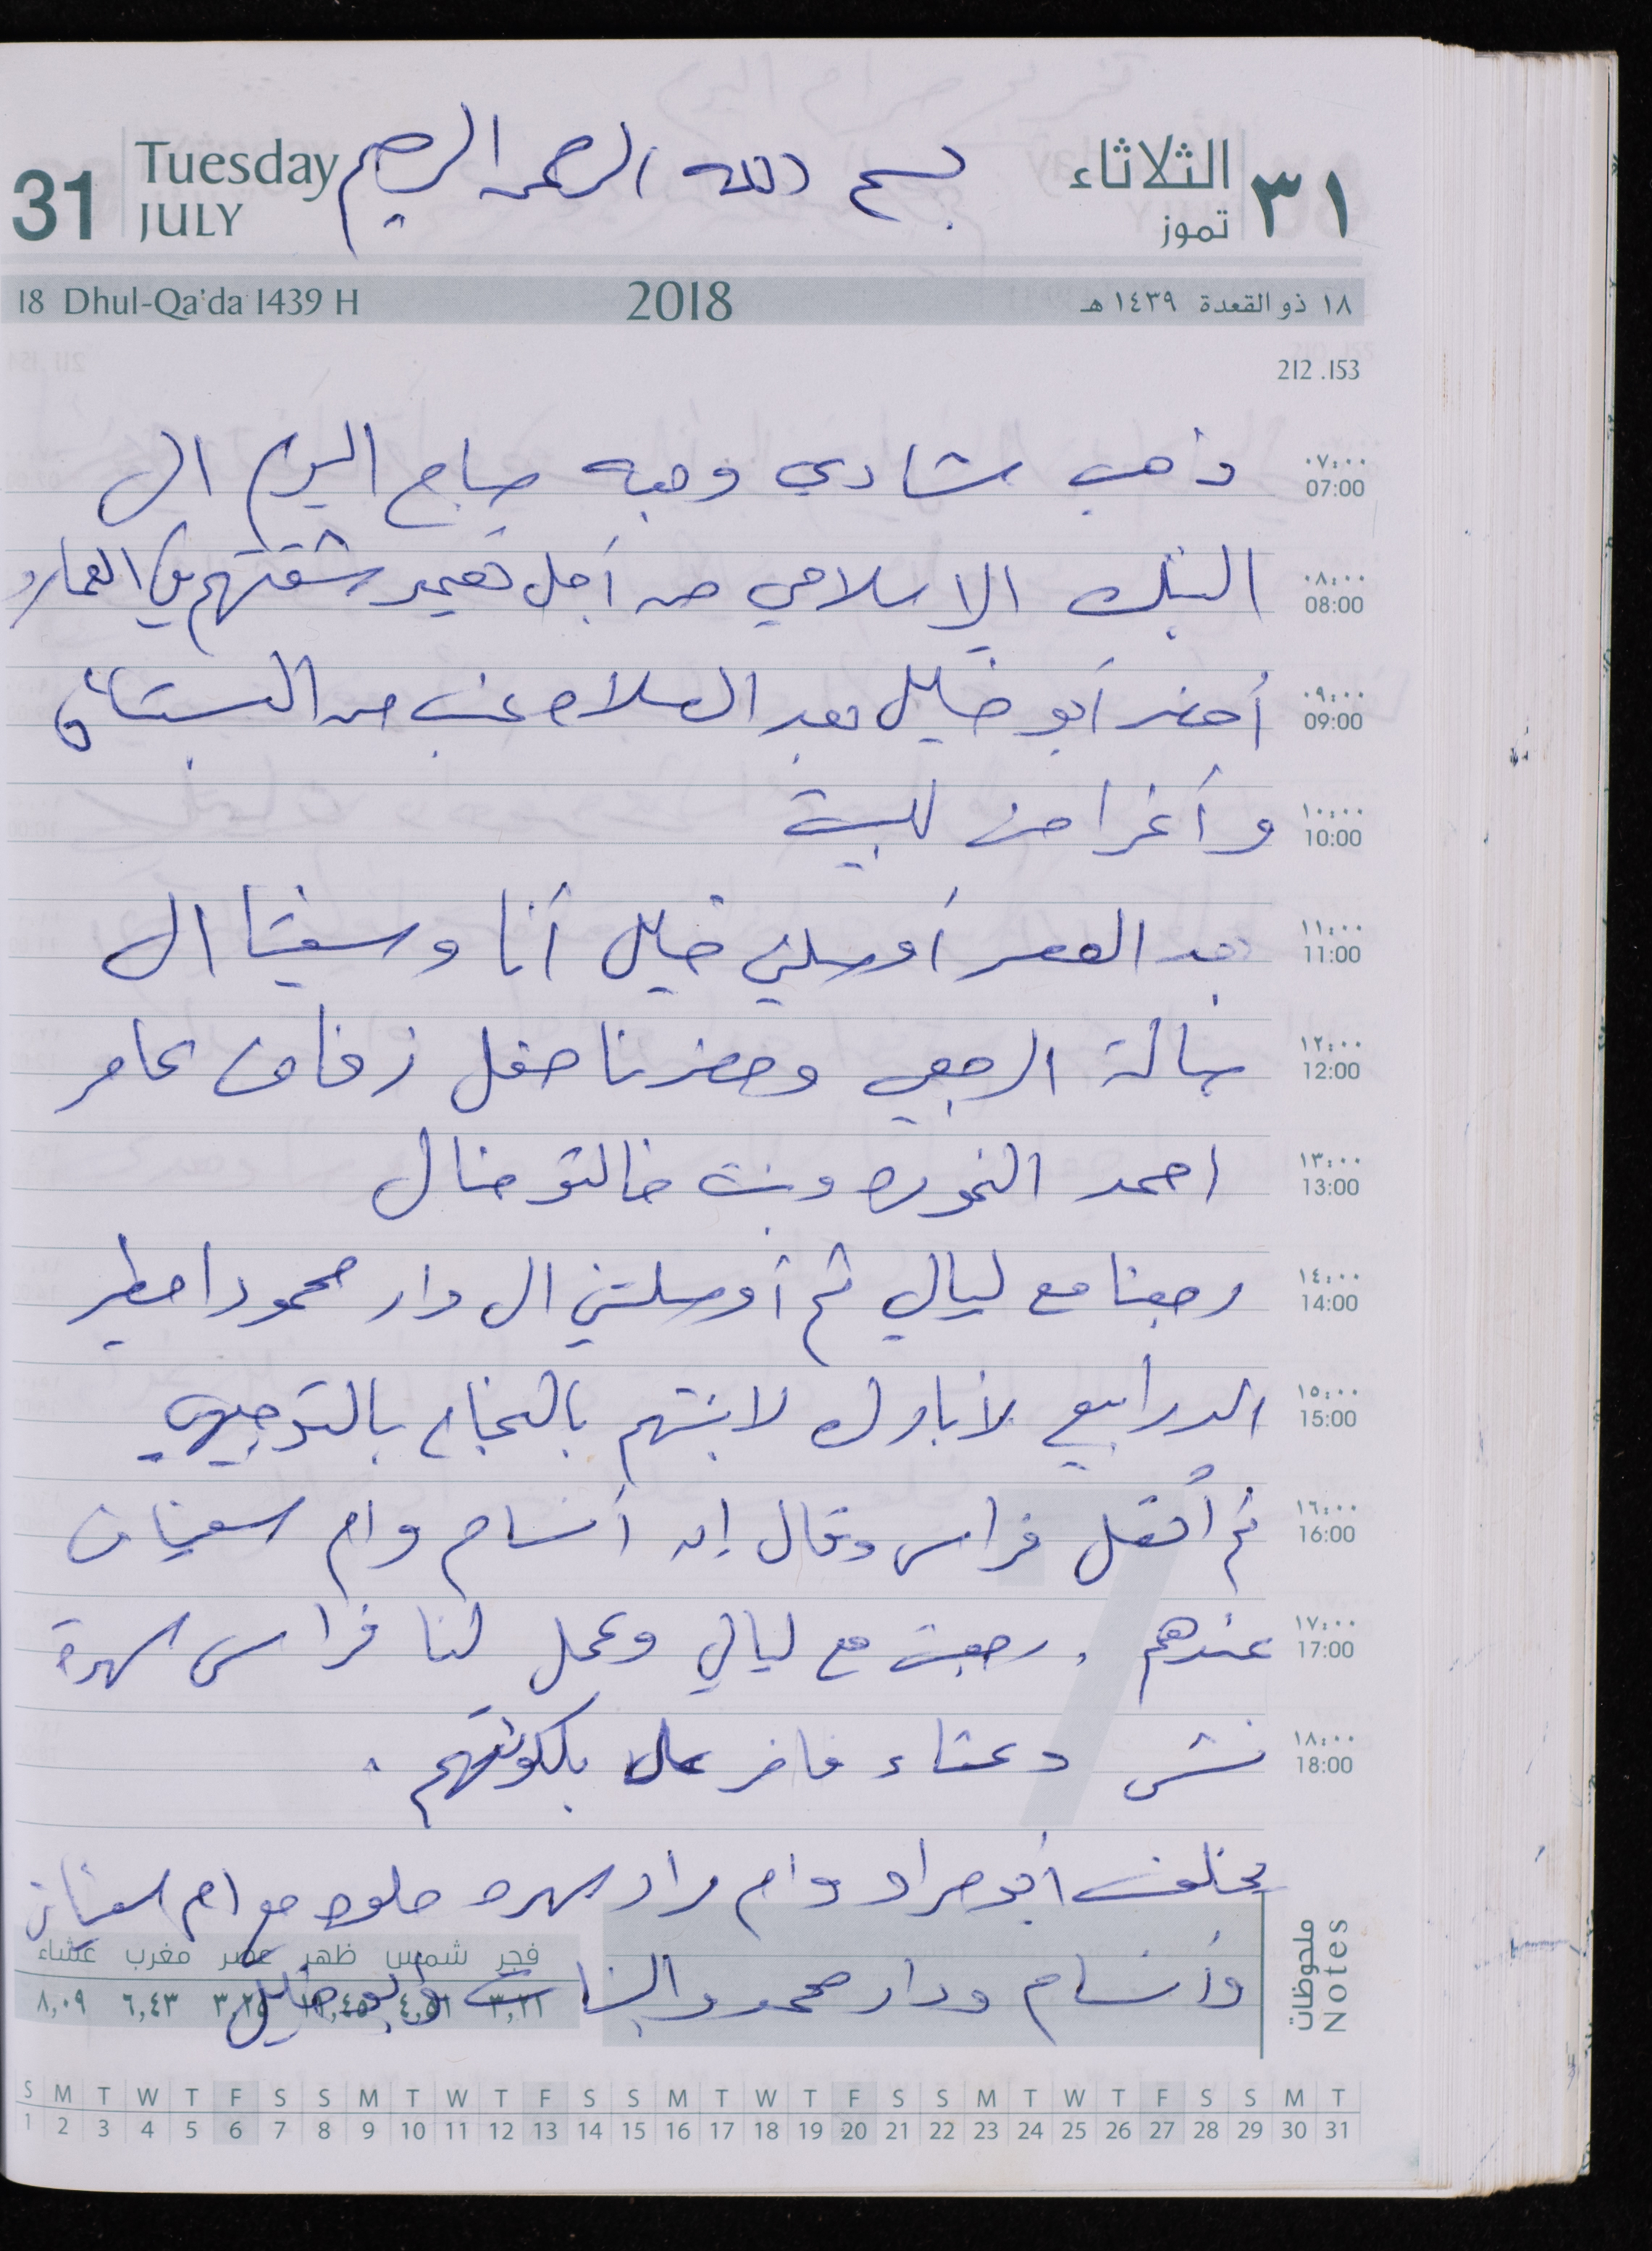 ٣١ الثلاثاء تموز
بسم الله الرحمن الرحيم
31 Tuesday JULY
١٨ ذو القعدة ١٤٣٩ هـ 2018 18 Dhul-Qa'da 1439 H
212 .153
٠٧:٠٠ 07:00 ذهب شادي وهبه صباح اليوم الى
٠٨:٠٠ 08:00 البنك الإسلامي من أجل تعمير شقتهم في العماره
٠٩:٠٠ 09:00 أحضر أبو خليل بعد الصلاه عنب من البستان
١٠:٠٠ 10:00 وأغراض للبيت
١١:٠٠ 11:00 بعد العصر أوصلني خليل أنا وسفيتا الى
١٢:٠٠ 12:00 صالة الرجعي وحضرنا حفل زفاف عامر
١٣:٠٠ 13:00 احمد النحوره وبنت خالتو منال
١٤:٠٠ 14:00 رجعنا مع ليالي ثم أوصلتني الى دار محمود امطير
١٥:٠٠ 15:00 الدرابيع لأبارك لابنتهم بالنجاح بالتوجيهي
١٦:٠٠ 16:00 ثم أتصل فراس وقال إن أنسام وام سفيان
١٧:٠٠ 17:00 عندهم . رجعت مع ليالي وعمل لنا فراس سهرة
١٨:٠٠ 18:00 نش وعشاء فاخر على بلكونتهم .
أبو مراد وام مراد سهره حلوه مع ام سفيان
وأنسام ودار محمد والبنات وأبو خليل
ملحوظات Notes
فجر شمس ظهر عصر مغرب عشاء
٣,٢١ ٤,٥١ ١١,٤٥ ٣,٢٥ ٦,٤٣ ٨,٠٩
S M T W T F S S M T W T F S S M T W T F S S M T W T F S S M T
1 2 3 4 5 6 7 8 9 10 11 12 13 14 15 16 17 18 19 20 21 22 23 24 25 26 27 28 29 30 31